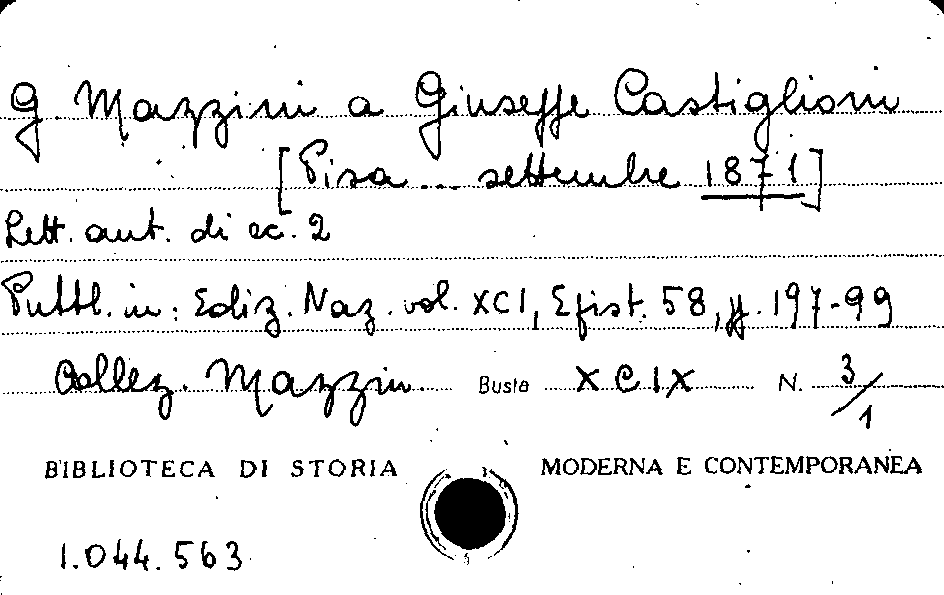 G. Mazzini a Giuseppe Castiglioni
[Pisa ... settembre 1871]
Lett. aut. di cc. 2
Pubbl. in: Ediz. Naz. vol. XCI, Epist. 58, pp. 197-99
Collez. Mazzin. Busta XCIX N. 3/1
BIBLIOTECA DI STORIA MODERNA E CONTEMPORANEA
1.044.563